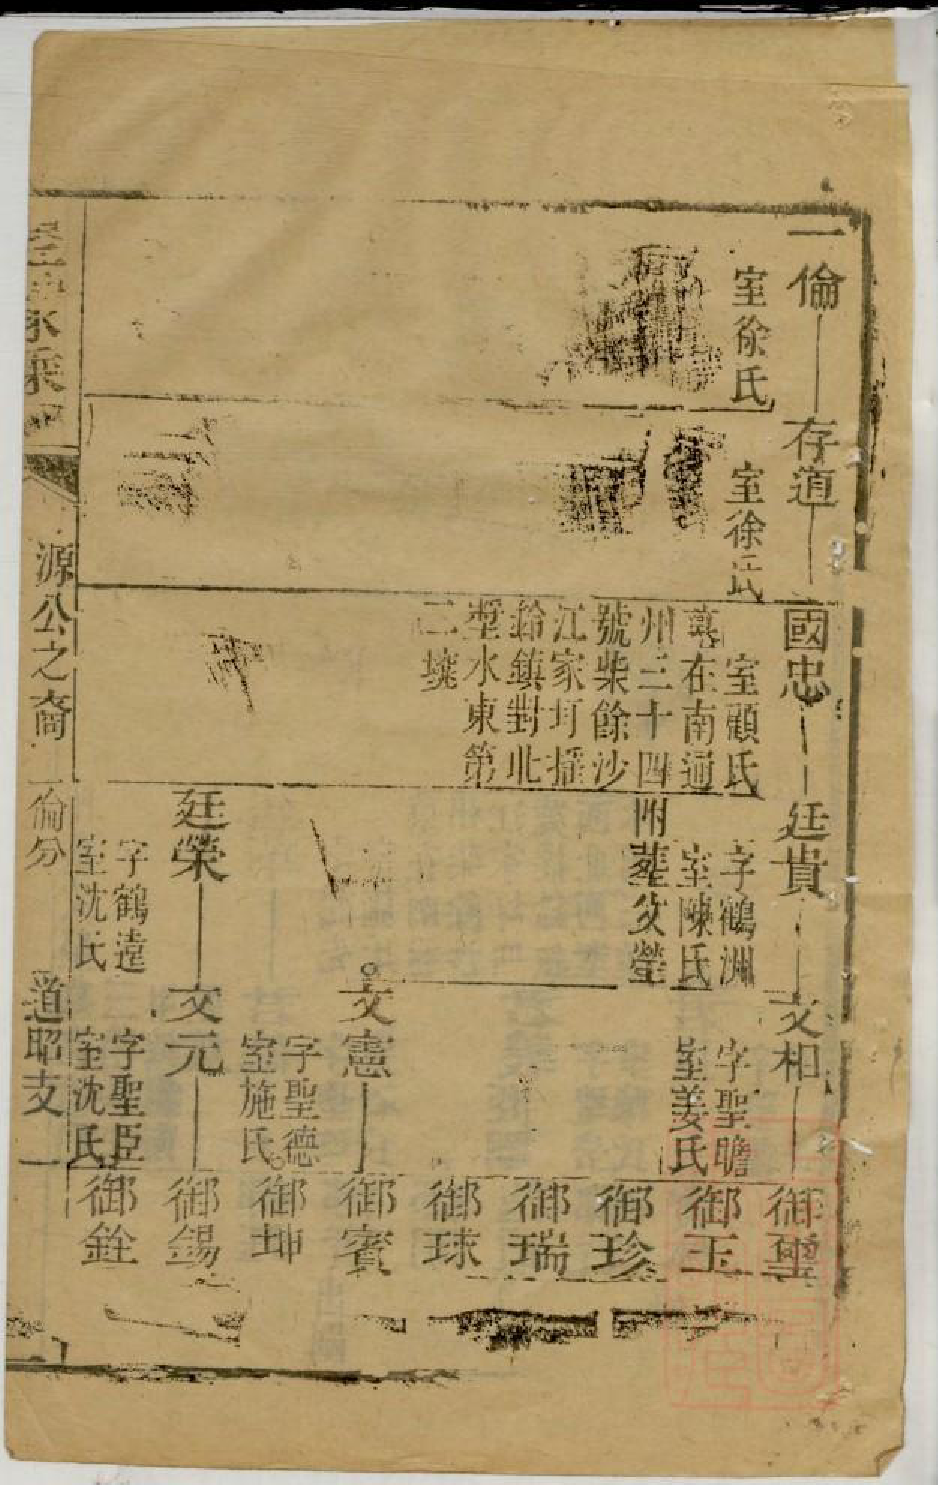 一倫
室徐氏
存道
室徐氏
國忠
室顧氏
墓在南通
州三十四
號柴餘沙
江家圩播
鈴鎮對北
塹水東第
二㙡
廷貴
字鶴洲
室陳氏
附葬父塋
廷榮
字鶴遠
室沈氏
文相
字聖瞻
室姜氏
文憲
字聖德
室施氏
文元
字聖臣
室沈氏
御聖
御玉
御珍
御瑞
御球
御賓
御坤
御錫
御銓
家乘
源公之裔
一倫分
道昭支
一